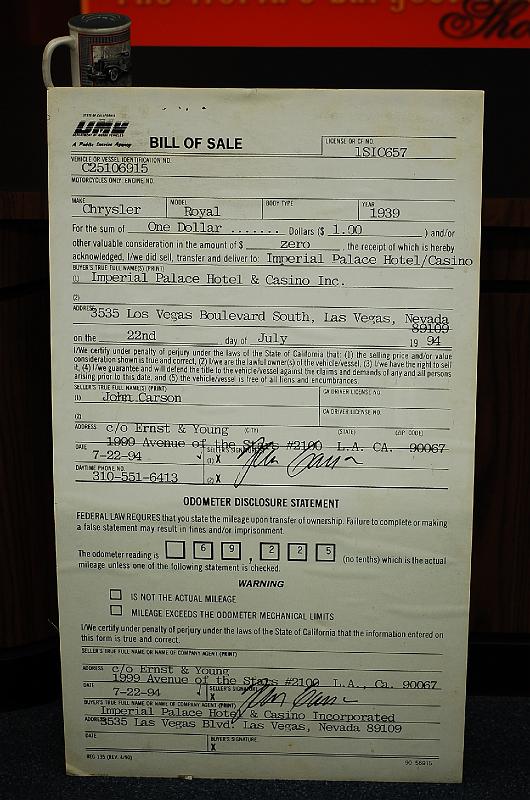 The World's Largest
Sho
STATE OF CALIFORNIA
DMV
DEPARTMENT OF MOTOR VEHICLES
A Public Service Agency
BILL OF SALE
LICENSE OR CF NO.
1SIC657
VEHICLE OR VESSEL IDENTIFICATION NO.
C25106915
MOTORCYCLES ONLY: ENGINE NO.
MAKE MODEL BODY TYPE YEAR
Chrysler Royal 1939
For the sum of One Dollar ....... Dollars ($ 1.00 ) and/or
other valuable consideration in the amount of $ zero , the receipt of which is hereby
acknowledged, I/we did sell, transfer and deliver to: Imperial Palace Hotel/Casino
BUYER'S TRUE FULL NAME(S) (PRINT)
(1) Imperial Palace Hotel & Casino Inc.
(2)
ADDRESS 3535 Los Vegas Boulevard South, Las Vegas, Nevada
89109
on the 22nd day of July 19 94
I/We certify under penalty of perjury under the laws of the State of California that: (1) the selling price and/or value
consideration shown is true and correct, (2) I/we are the lawful owner(s) of the vehicle/vessel, (3) I/we have the right to sell
it, (4) I/we guarantee and will defend the title to the vehicle/vessel against the claims and demands of any and all persons
arising prior to this date, and (5) the vehicle/vessel is free of all liens and encumbrances.
SELLER'S TRUE FULL NAME(S) (PRINT) CA DRIVER LICENSE NO.
(1) John Carson
(2) CA DRIVER LICENSE NO.
ADDRESS c/o Ernst & Young (CITY) (STATE) (ZIP CODE)
1999 Avenue of the Stars #2100 L.A. CA. 90067
DATE SELLER'S SIGNATURE
7-22-94 (1) X John Carson
DAYTIME PHONE NO.
310-551-6413 (2) X
ODOMETER DISCLOSURE STATEMENT
FEDERAL LAW REQUIRES that you state the mileage upon transfer of ownership. Failure to complete or making
a false statement may result in fines and/or imprisonment.
The odometer reading is 6 9 , 2 2 5 (no tenths) which is the actual
mileage unless one of the following statement is checked.
WARNING
IS NOT THE ACTUAL MILEAGE
MILEAGE EXCEEDS THE ODOMETER MECHANICAL LIMITS
I/We certify under penalty of perjury under the laws of the State of California that the information entered on
this form is true and correct.
SELLER'S TRUE FULL NAME OR NAME OF COMPANY AGENT (PRINT)
ADDRESS c/o Ernst & Young
1999 Avenue of the Stars #2100 L.A., Ca. 90067
DATE SELLER'S SIGNATURE
7-22-94 X John Carson
BUYER'S TRUE FULL NAME OR NAME OF COMPANY AGENT (PRINT)
Imperial Palace Hotel & Casino Incorporated
ADDRESS 3535 Las Vegas Blvd. Las Vegas, Nevada 89109
DATE BUYER'S SIGNATURE
X
REG 135 (REV. 4/90) 90 56915